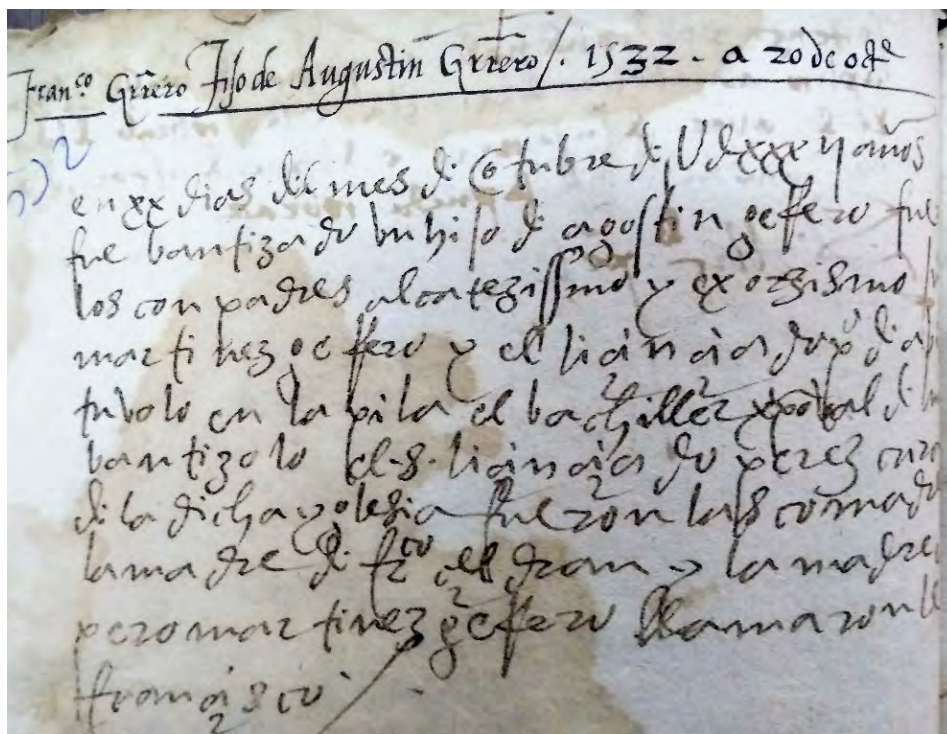 Fran.co Grrero Fijo de Augustin Grrero /. 1532 - a 20 de octe
en xx dias del mes de Otubre de U d xxx y años
fue bautizado un hijo de agostin gerrero
los conpadres al categissmo y exorzismo
martinez gerrero y el licinciado
tubolo en la pila el bachiller xpoval de
bautizolo el .s. licinciado perez cura
de la dicha yglesia fueron las comad
la madre de frco y la madre
pero martinez gerrero llamaron
francisco